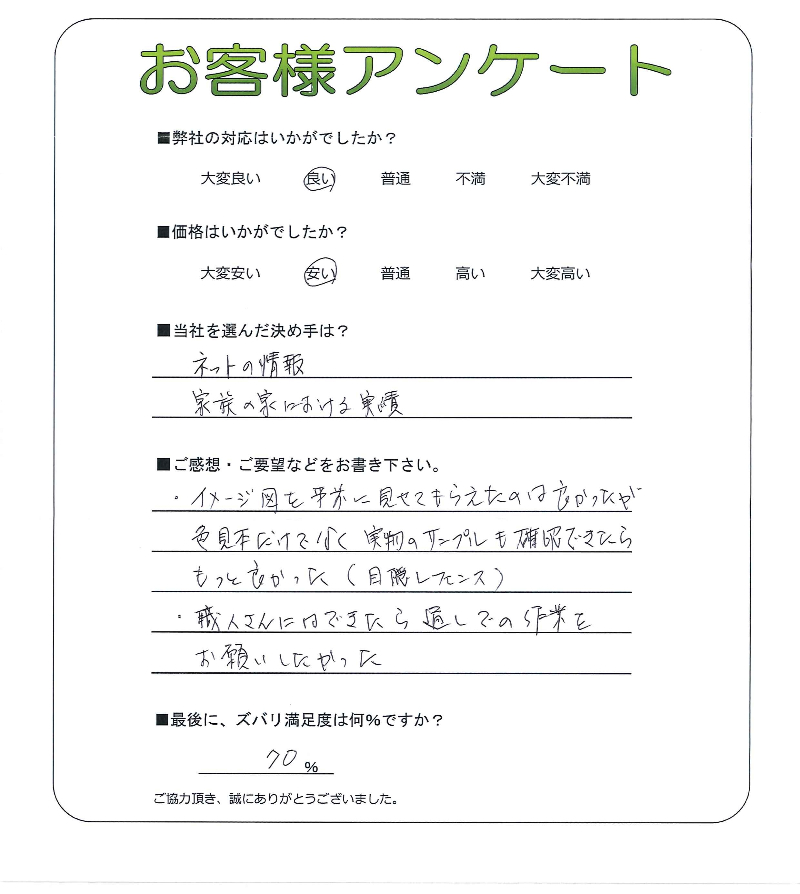 お客様アンケート
■弊社の対応はいかがでしたか？
大変良い 良い 普通 不満 大変不満
■価格はいかがでしたか？
大変安い 安い 普通 高い 大変高い
■当社を選んだ決め手は？
ネットの情報
家族の家における実績
■ご感想・ご要望などをお書き下さい。
・イメージ図を事前に見せてもらえたのは良かったが
色見本だけでなく実物のサンプルも確認できたら
もっと良かった（目隠しフェンス）
・職人さんにはできたら通しでの作業を
お願いしたかった
■最後に、ズバリ満足度は何%ですか？
70%
ご協力頂き、誠にありがとうございました。